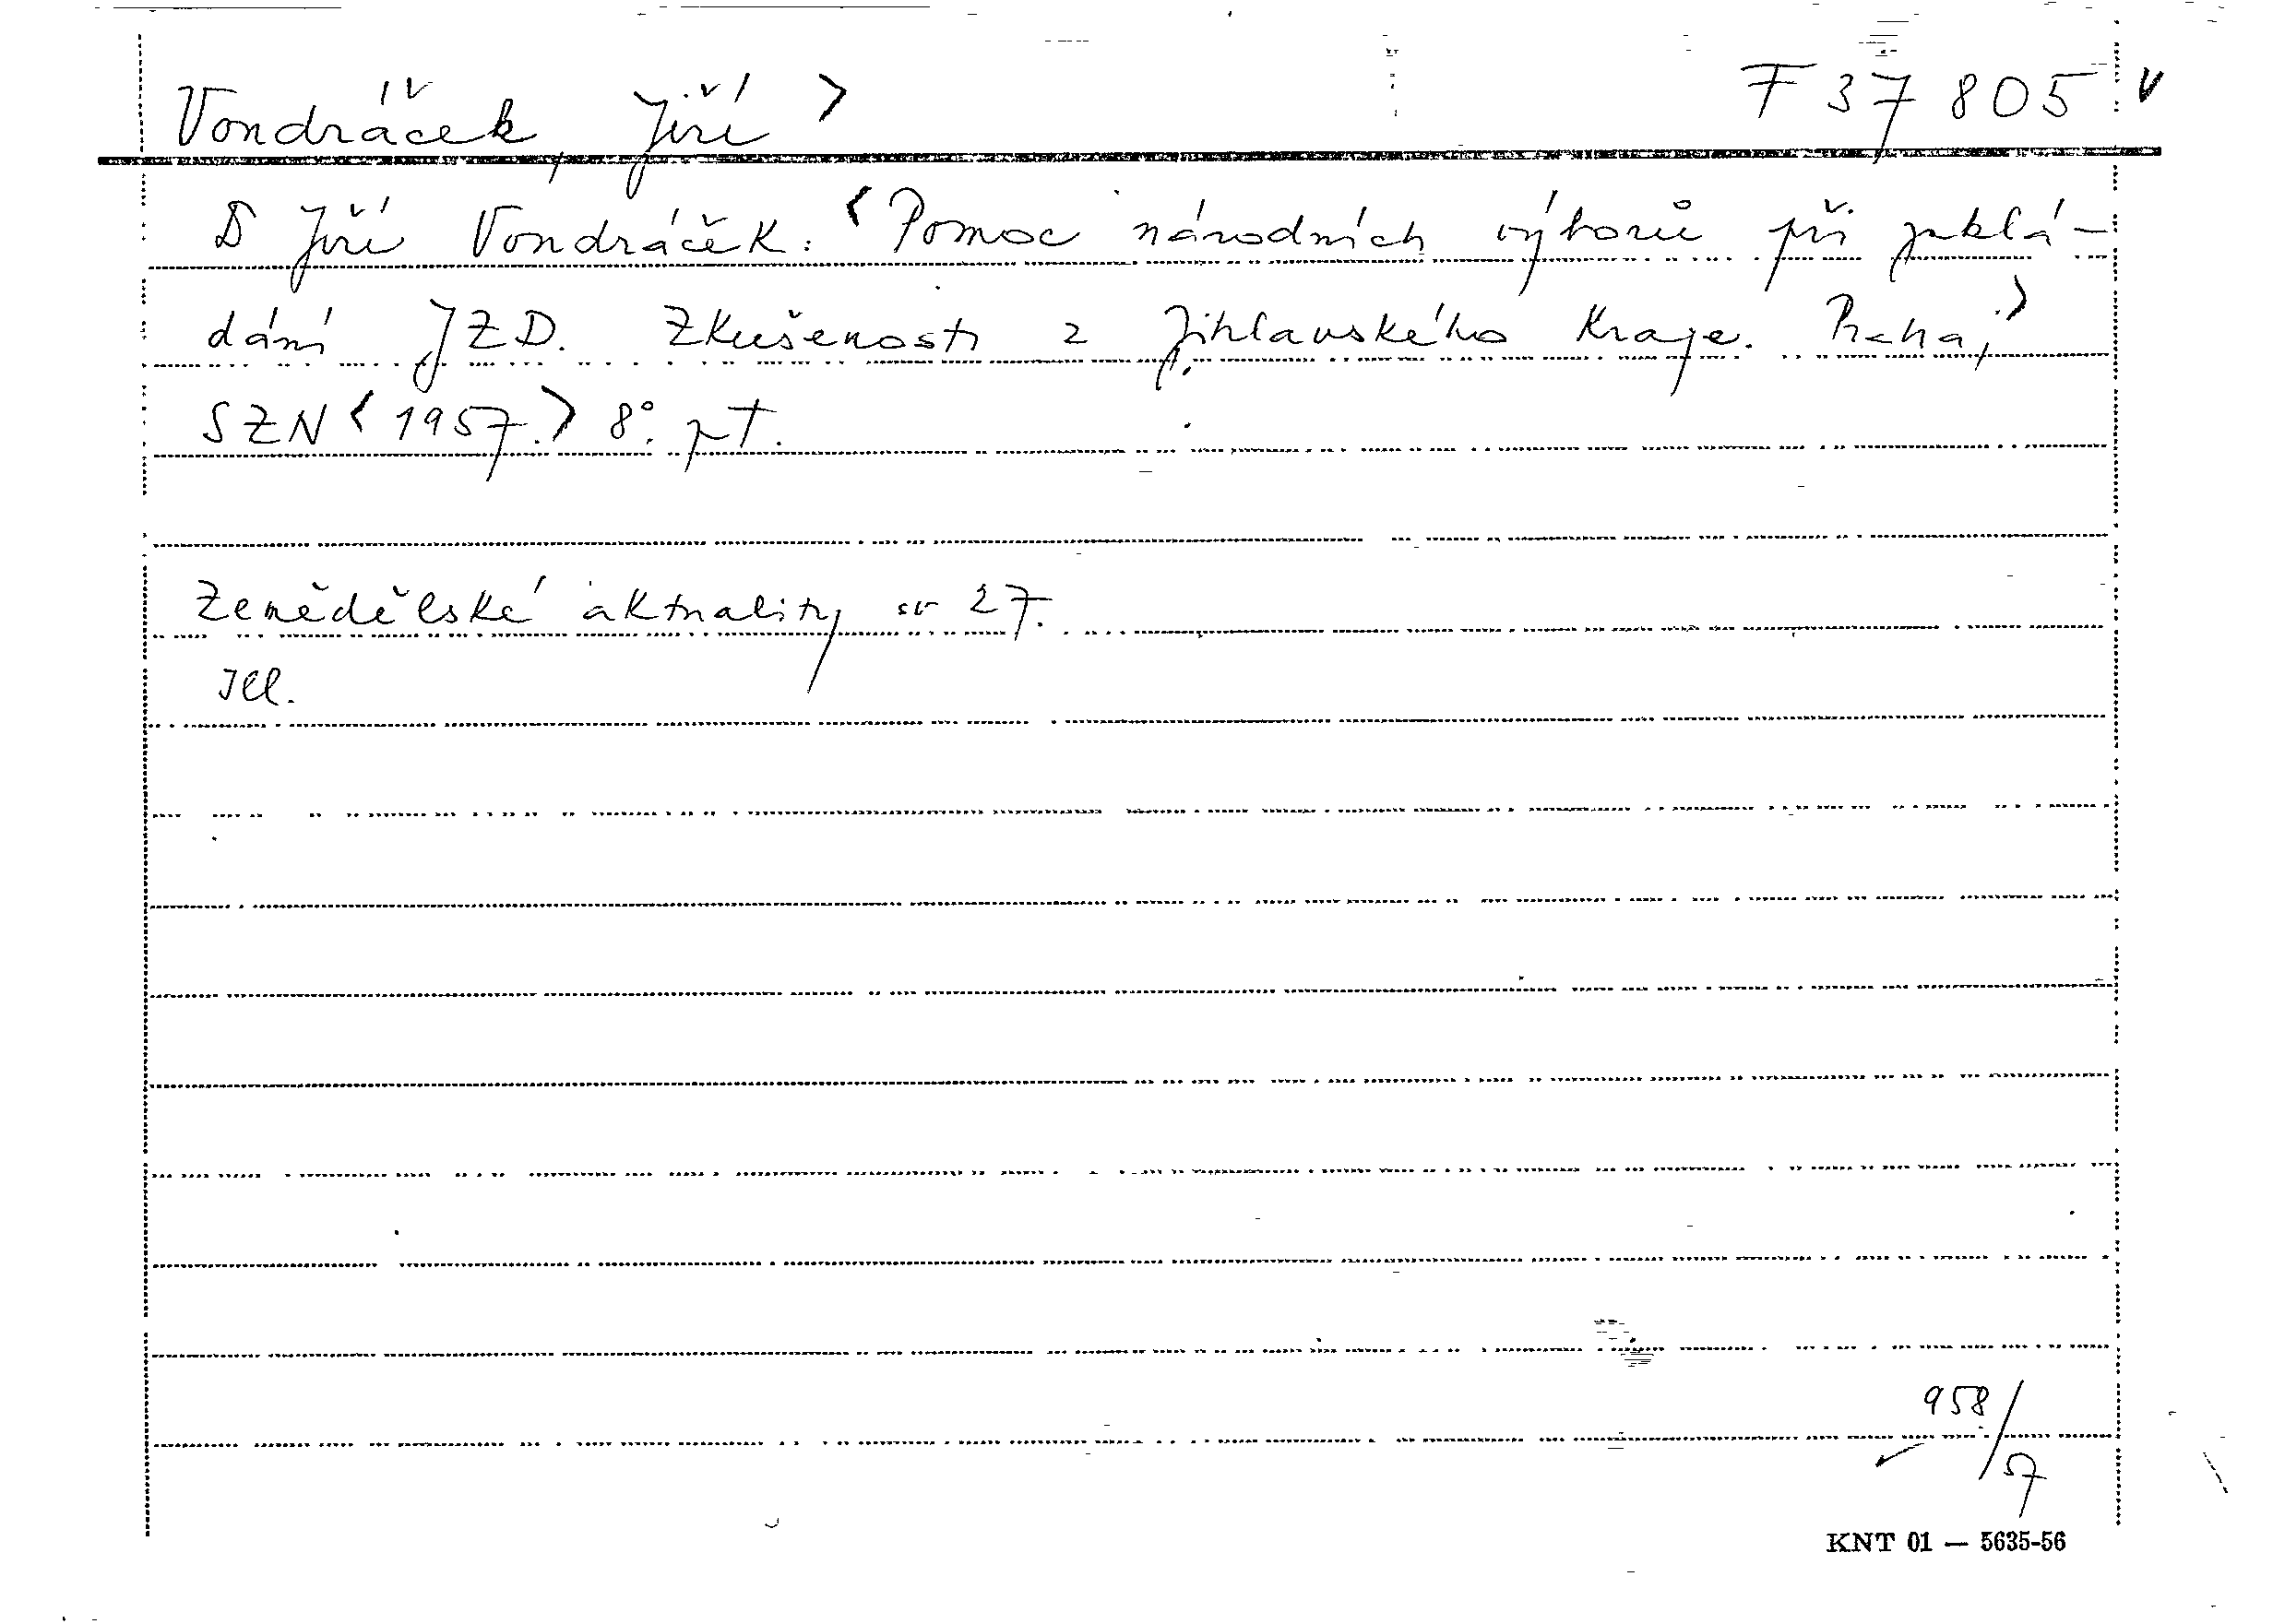 Vondráček, Jiří > F 37 805 v
D Jiří Vondráček: <Pomoc národních výborů při zaklá-
dání JZD. Zkušenosti z Jihlavského kraje. Praha,>
SZN <1957.> 8°. pt.
Zemědělské aktuality sv 27.
Ill.
958/57
KNT 01 — 5635-56